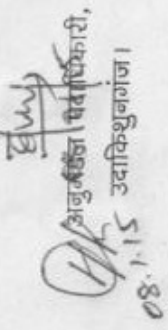 अनुमंडल पदाधिकारी,
उदाकिशुनगंज।
08.1.15